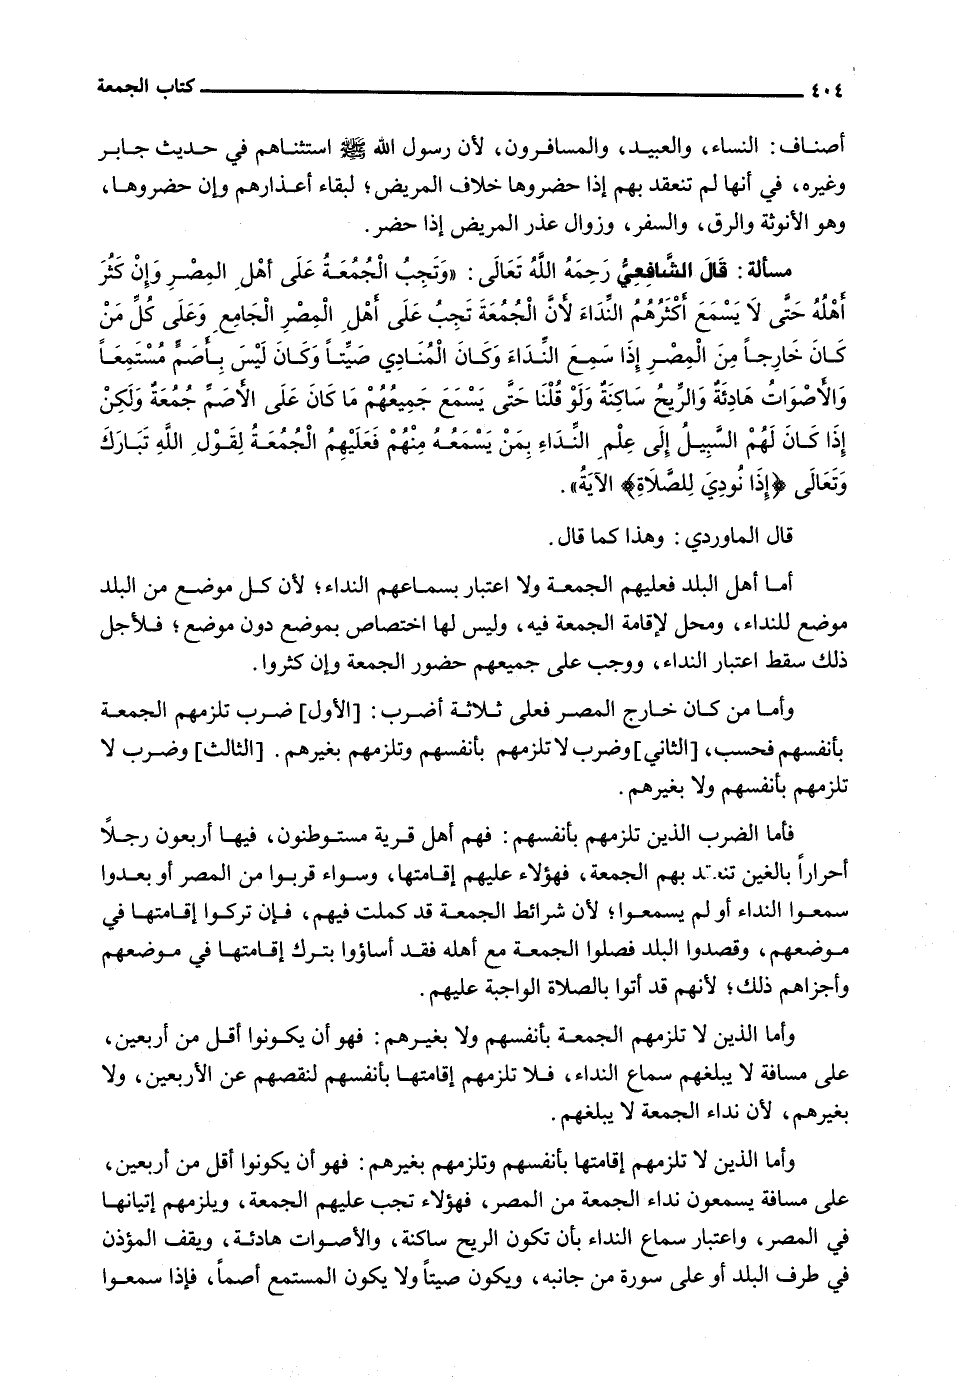 ٤٠٤ كتاب الجمعة
أصناف: النساء، والعبيد، والمسافرون، لأن رسول الله ﷺ استثناهم في حديث جابر
وغيره، في أنها لم تنعقد بهم إذا حضروها خلاف المريض؛ لبقاء أعذارهم وإن حضروها،
وهو الأنوثة والرق، والسفر، وزوال عذر المريض إذا حضر.
مسألة: قَالَ الشَّافِعِيُّ رَحِمَهُ اللَّهُ تَعَالَى: «وَتَجِبُ الْجُمُعَةُ عَلَى أَهْلِ الْمِصْرِ وَإِنْ كَثُرَ
أَهْلُهُ حَتَّى لَا يَسْمَعَ أَكْثَرُهُمُ النِّدَاءَ لأَنَّ الْجُمُعَةَ تَجِبُ عَلَى أَهْلِ الْمِصْرِ الْجَامِعِ وَعَلَى كُلِّ مَنْ
كَانَ خَارِجاً مِنَ الْمِصْرِ إِذَا سَمِعَ النِّدَاءَ وَكَانَ الْمُنَادِي صَيِّتاً وَكَانَ لَيْسَ بِأَصَمَّ مُسْتَمِعَاً
وَالْأَصْوَاتُ هَادِئَةٌ وَالرِّيحُ سَاكِنَةٌ وَلَوْ قُلْنَا حَتَّى يَسْمَعَ جَمِيعُهُمْ مَا كَانَ عَلَى الأَصَمِّ جُمُعَةٌ وَلَكِنْ
إِذَا كَانَ لَهُمُ السَّبِيلُ إِلَى عِلْمِ النِّدَاءِ بِمَنْ يَسْمَعُهُ مِنْهُمْ فَعَلَيْهِمُ الْجُمُعَةُ لِقَوْلِ اللَّهِ تَبَارَكَ
وَتَعَالَى ﴿إِذَا نُودِيَ لِلصَّلَاةِ﴾ الآيَةُ».
قال الماوردي: وهذا كما قال.
أما أهل البلد فعليهم الجمعة ولا اعتبار بسماعهم النداء؛ لأن كل موضع من البلد
موضع للنداء، ومحل لإقامة الجمعة فيه، وليس لها اختصاص بموضع دون موضع؛ فلأجل
ذلك سقط اعتبار النداء، ووجب على جميعهم حضور الجمعة وإن كثروا.
وأما من كان خارج المصر فعلى ثلاثة أضرب: [الأول] ضرب تلزمهم الجمعة
بأنفسهم فحسب، [الثاني] وضرب لا تلزمهم بأنفسهم وتلزمهم بغيرهم. [الثالث] وضرب لا
تلزمهم بأنفسهم ولا بغيرهم.
فأما الضرب الذين تلزمهم بأنفسهم: فهم أهل قرية مستوطنون، فيها أربعون رجلاً
أحراراً بالغين بهم الجمعة، فهؤلاء عليهم إقامتها، وسواء قربوا من المصر أو بعدوا
سمعوا النداء أو لم يسمعوا؛ لأن شرائط الجمعة قد كملت فيهم، فإن تركوا إقامتها في
موضعهم، وقصدوا البلد فصلوا الجمعة مع أهله فقد أساؤوا بترك إقامتها في موضعهم
وأجزاهم ذلك؛ لأنهم قد أتوا بالصلاة الواجبة عليهم.
وأما الذين لا تلزمهم الجمعة بأنفسهم ولا بغيرهم: فهو أن يكونوا أقل من أربعين،
على مسافة لا يبلغهم سماع النداء، فلا تلزمهم إقامتها بأنفسهم لنقصهم عن الأربعين، ولا
بغيرهم، لأن نداء الجمعة لا يبلغهم.
وأما الذين لا تلزمهم إقامتها بأنفسهم وتلزمهم بغيرهم: فهو أن يكونوا أقل من أربعين،
على مسافة يسمعون نداء الجمعة من المصر، فهؤلاء تجب عليهم الجمعة، ويلزمهم إتيانها
في المصر، واعتبار سماع النداء بأن تكون الريح ساكنة، والأصوات هادئة، ويقف المؤذن
في طرف البلد أو على سورة من جانبه، ويكون صيتاً ولا يكون المستمع أصماً، فإذا سمعوا